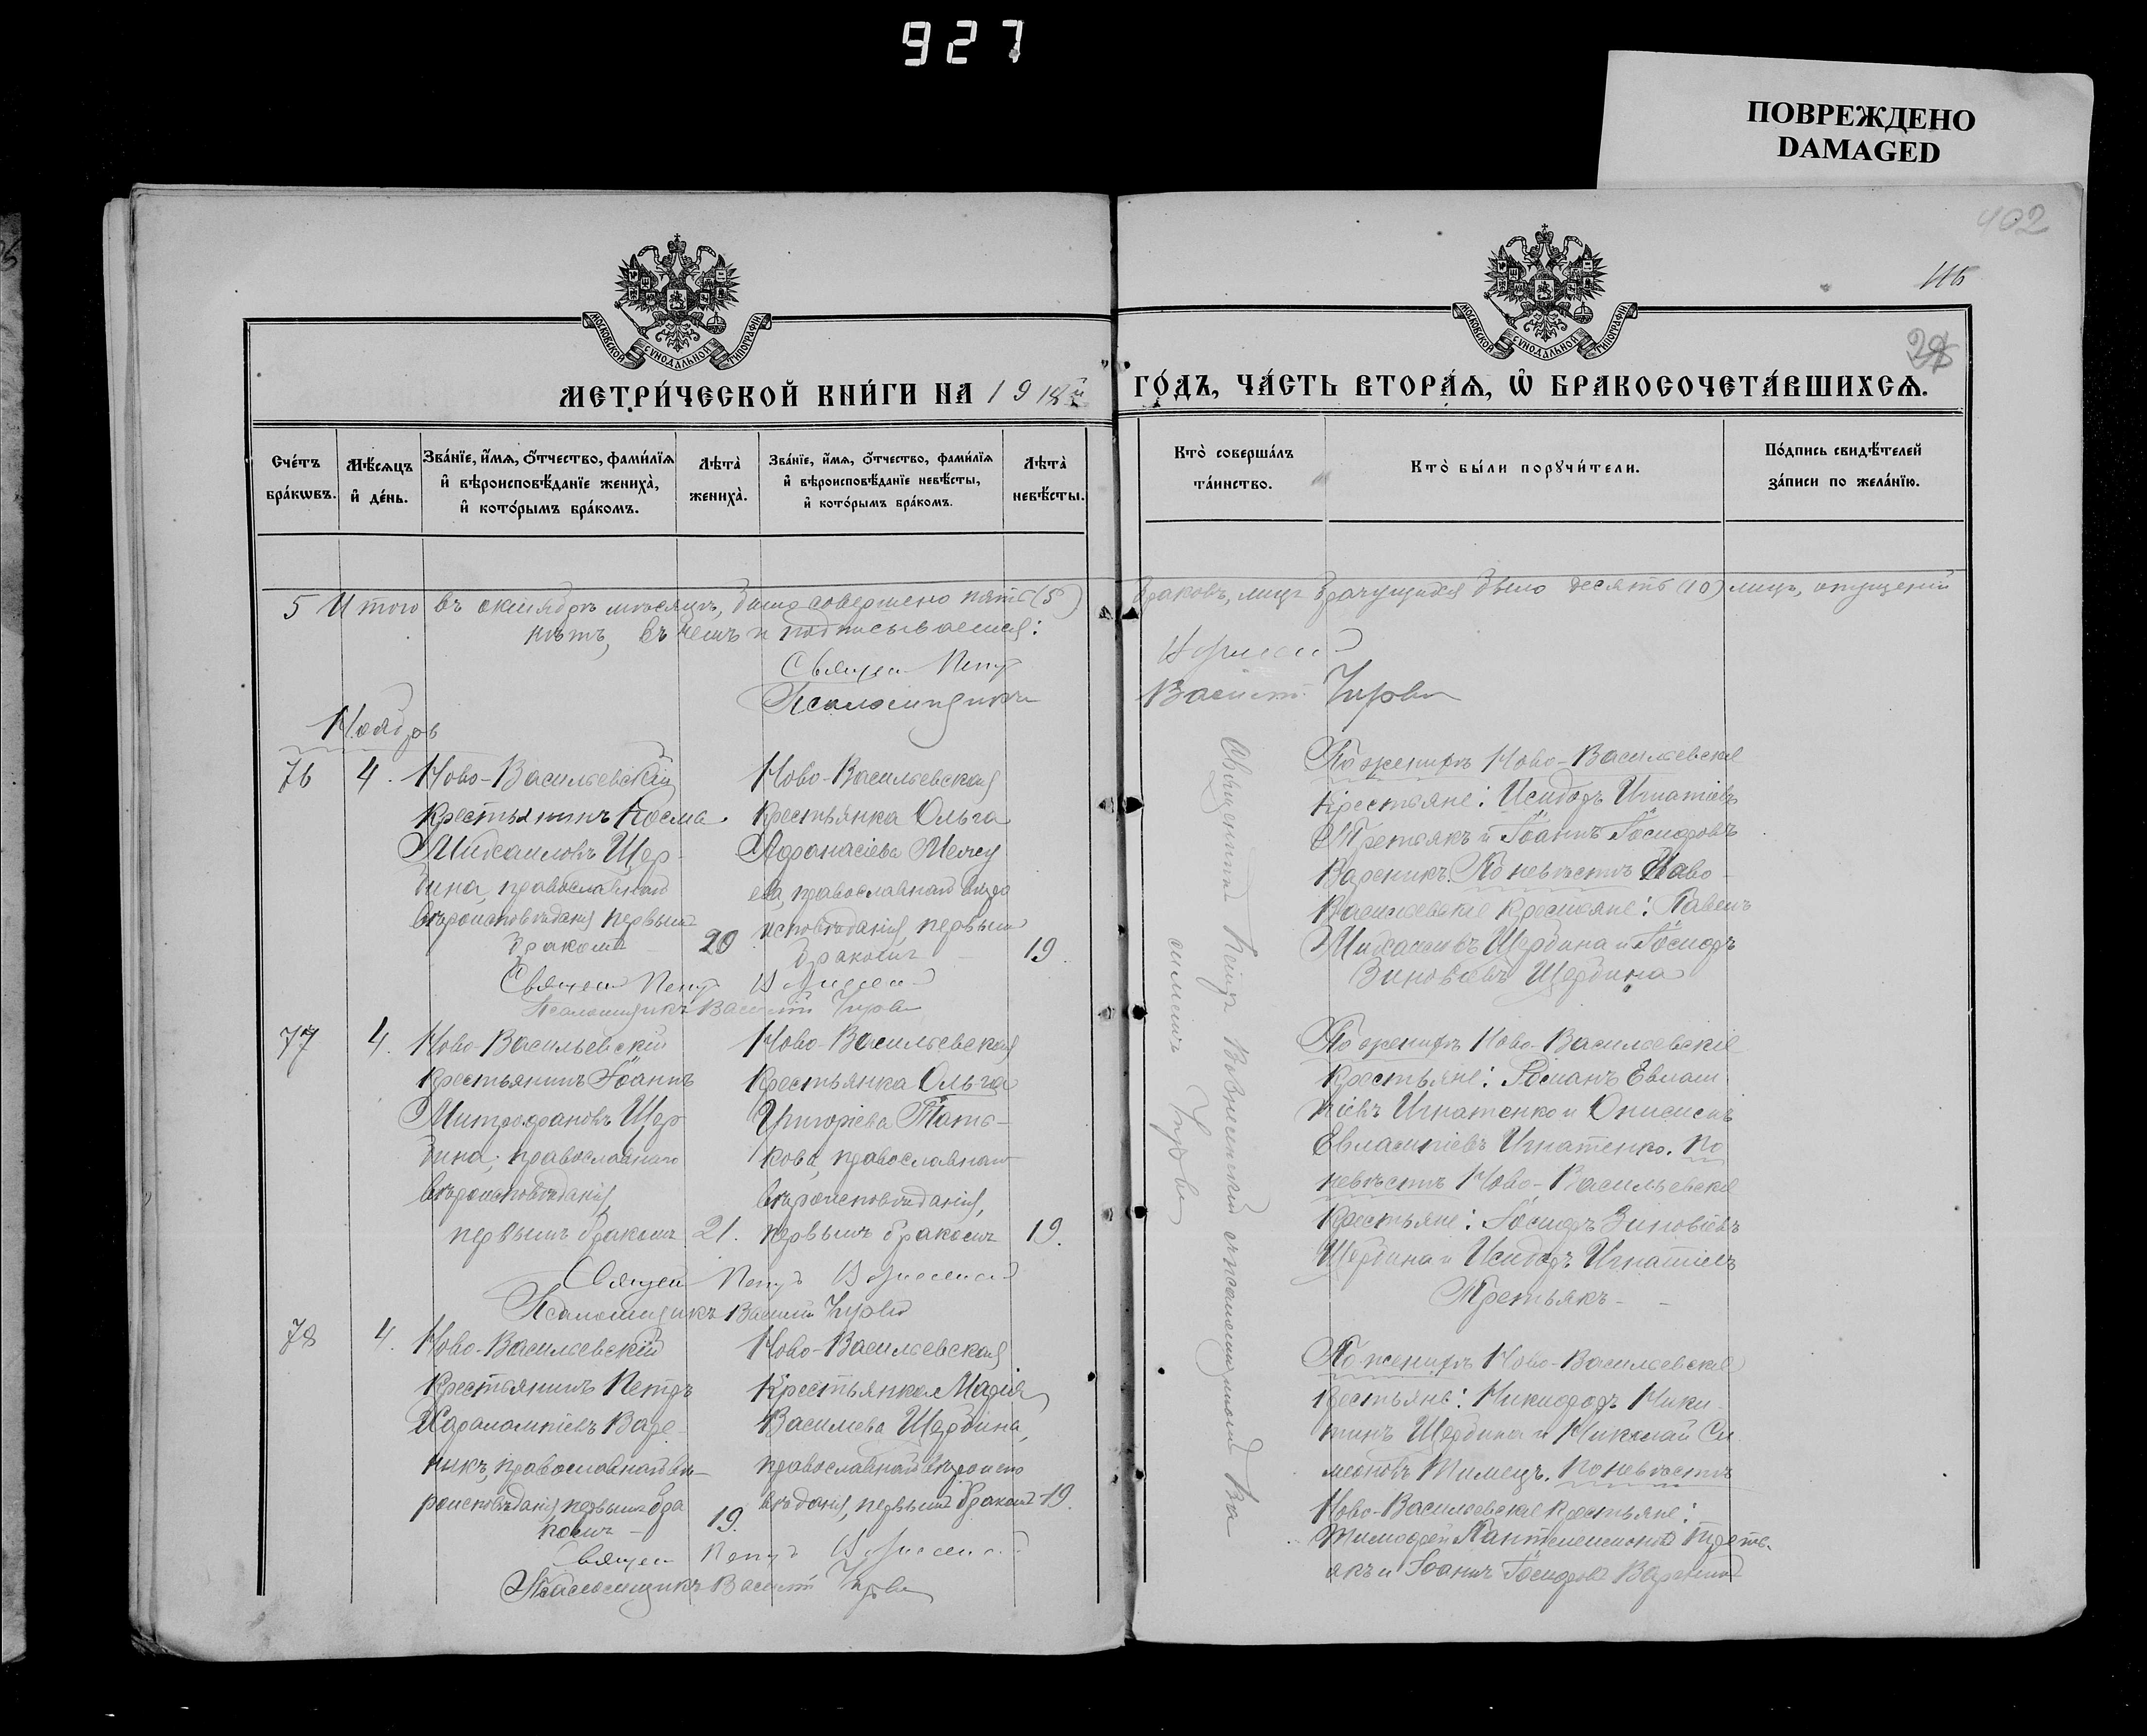 927
ПОВРЕЖДЕНО
DAMAGED
402
116
МОСКОВСКОЙ СУНОДАЛЬНОЙ ТИПОГРАФІИ
МОСКОВСКОЙ СУНОДАЛЬНОЙ ТИПОГРАФІИ
МЕТРИ́ЧЕСКОЙ КНИ́ГИ НА 1918й ГО́ДЪ, ЧА́СТЬ ВТОРА́Ѧ, Ѽ БРАКОСОЧЕТА́ВШИХСѦ.
Сче́тъ бра́кωвъ.
Мѣ́сѧцъ и҆ де́нь.
Зва́нїе, и҆́мѧ, ѻ҆́тчество, фами́лїѧ и҆ вѣроисповѣ́данїе жениха̀, и҆ кото́рымъ бра́комъ.
Лѣта̀ жениха̀.
Зва́нїе, и҆́мѧ, ѻ҆́тчество, фами́лїѧ и҆ вѣроисповѣ́данїе невѣ́сты, и҆ кото́рымъ бра́комъ.
Лѣта̀ невѣ́сты.
Кто̀ соверша́лъ та́инство.
Кто̀ бы́ли порꙋчи́тели.
По́дпись свидѣ́телей за́писи по жела́нїю.
5 Итого въ октябрѣ мѣсяцѣ, было совершено пять (5) браковъ, лицъ брачущихся было десять (10) лицъ, опущеній
нѣтъ, въ чемъ и подписываемся:
Священ Петр
Псаломщикъ Василій Чирва
Ноябрь
76 4. Ново-Васильевскій
крестьянинъ Косма
Михаиловъ Щер-
бина, православнаго
вѣроисповѣданія первымъ
бракомъ 20
Ново-Васильевская
крестьянка Ольга
Афанасіева
православнаго вѣро
исповѣданія, первым
бракомъ 19.
По женихѣ Ново-Васильевскіе
крестьяне: Исидоръ Игнатіевъ
Третьякъ и Іоаннъ Іосифовъ
Вареникъ. По невѣстѣ Ново-
Васильевскіе крестьяне: Павелъ
Михаиловъ Щербина и Іосифъ
Зиновіевъ Щербина
Священ Петр
Псаломщикъ Василій Чирва
77 4. Ново-Васильевскій
крестьянинъ Іоаннъ
Митрофановъ Щер
бина, православнаго
вѣроисповѣданія,
первымъ бракомъ 21.
Ново-Васильевская
крестьянка Ольга
Григоріева Тать-
кова, православнаго
вѣроисповѣданія,
первымъ бракомъ 19.
По женихѣ Ново-Васильевскіе
крестьяне: Романъ Евлам
піевъ Игнатенко и Онисимъ
Евлампіевъ Игнатенко. По
невѣстѣ Ново-Васильевскіе
крестьяне: Іосифъ Зиновіевъ
Щербина и Исидоръ Игнатіевъ
Третьякъ -
Священ Петр
Псаломщикъ Василій Чирва
78 4. Ново-Васильевскій
крестьянинъ Петръ
Харалампіевъ Варе-
никъ, православнаго вѣ-
роисповѣданія, первымъ бра
комъ - 19.
Ново-Васильевская
крестьянка Марія
Василіева Щербина,
православнаго вѣроиспо
вѣданія, первымъ бракомъ 19.
По женихѣ Ново-Васильевскіе
крестьяне: Никифоръ Ники-
тинъ Щербина и Николай Си
меоновъ Тимецъ. По невѣстѣ
Ново-Васильевскіе крестьяне:
Тимофей Пантелеимоновъ Треть-
якъ и Іоаннъ Іосифовъ Вареникъ
Священ Петр
Псаломщикъ Василій Чирва
Священникъ Петръ Вознесенскій съ псаломщикомъ Ва
силіемъ Чирва